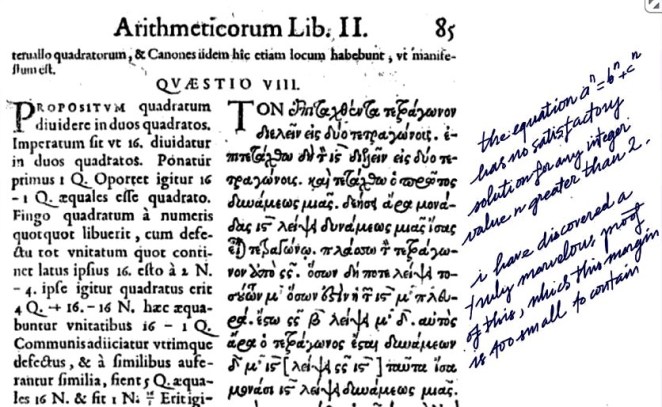 Arithmeticorum Lib. II. 85
teruallo quadratorum, & Canones iidem hîc etiam locum habebunt, vt manife-
stum est.
QVÆSTIO VIII.
PROPOSITVM quadratum
diuidere in duos quadratos.
Imperatum sit vt 16. diuidatur
in duos quadratos. Ponatur
primus 1 Q. Oportet igitur 16
- 1 Q. æquales esse quadrato.
Fingo quadratum à numeris
quotquot libuerit, cum defe-
ctu tot vnitatum quot conti-
net latus ipsius 16. esto à 2 N.
- 4. ipse igitur quadratus erit
4 Q. + 16. - 16 N. hæc æqua-
buntur vnitatibus 16 - 1 Q.
Communis adiiciatur vtrimque
defectus, & à similibus aufe-
rantur similia, fient 5 Q. æqua-
les 16 N. & fit 1 N. Erit igi-
ΤΟΝ ἐπιταχθέντα τετράγωνον
διελεῖν εἰς δύο τετραγώνοις. ἐ-
πιτετάχθω δὴ τ ις διελεῖν εἰς δύο τε-
τραγώνοις. καὶ τετάχθω ὁ πρῶτος
δυνάμεως μιᾶς. δεήσει ἄρα μονά-
δας ις λείψει δυνάμεως μιᾶς ἴσας
ἐῖ τετραγώνῳ. πλάσσω τ τετράγω-
νον ἀπὸ ςς. ὅσων δή ποτε λείψει το-
σούτων μ ὅσων ἐστὶν ἡ τ ις μ πλευ-
ρά. ἔστω ςς β λείψει μ δ. αὐτὸς
ἄρα ὁ τετράγωνος ἔσται δυνάμεων
δ μ ις [λείψει ςς ις] ταῦτα ἴσα
μονάσι ις λείψει δυνάμεως μιᾶς.
the equation aⁿ=bⁿ+cⁿ
has no satisfactory
solution for any integer
value n greater than 2.
i have discovered a
truly marvelous proof
of this, which this margin
is too small to contain